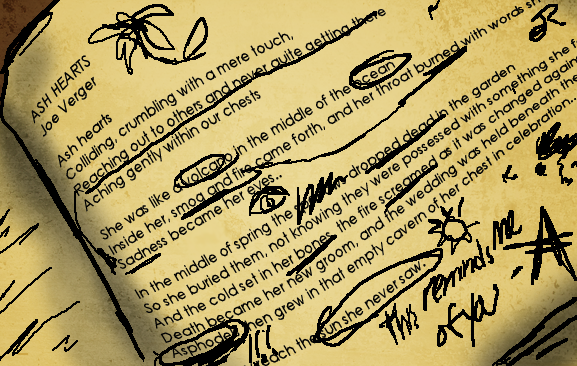 ASH HEARTS
Joe Verger
Ash hearts
Colliding, crumbling with a mere touch,
Reaching out to others and never quite getting there
Aching gently within our chests
She was like a volcano in the middle of the ocean
Inside her, smog and fire came forth, and her throat burned with words
Sadness became her eyes..
In the middle of spring the dropped dead in the garden
So she buried them, not knowing they were possessed with something she
And the cold set in her bones, the fire screamed as it was changed again
Death became her new groom, and the wedding was held beneath the
Asphodel then grew in that empty cavern of her chest in celebration..
reach the sun she never saw.
this reminds me
of you
- A
!!